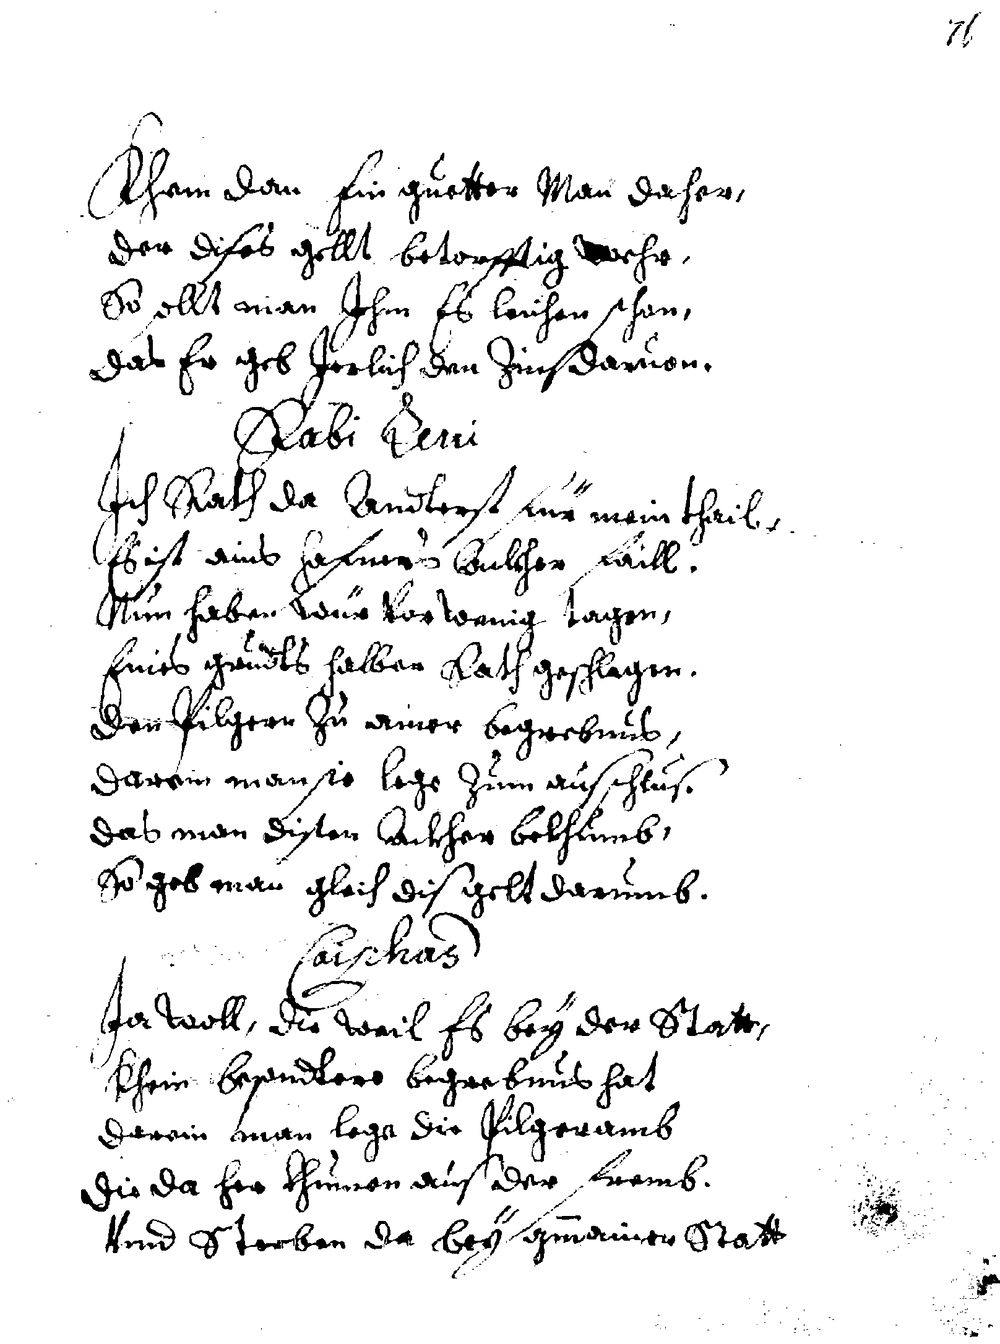 76
Khem dan Ein guetter Man daher,
der dises gellt betorfftig wehr,
So sollt man Ihm Es leichen schon,
das Er geb Jerlich den Zins daruon.
Rabi Leui
Ich Rath da Anderst für mein thail,
Es ist ains hafners Ackher faill.
Nun haben wür vor wenig tagen,
Eines grundts halber Rath geschlagen.
Den Pilgern Zu ainer begrebnus,
darein man sie lege Zum ausschlus.
das man disen Ackher bekhumb,
So geb man gleich dis gelt darumb.
Caiphas
Ja woll, die weil Es bey der Statt,
Khein besondere begrebnus hat
darein man lege die Pilgeramb
die da her khumen aus der fremb.
Vnd Sterben da bey gmainer Statt